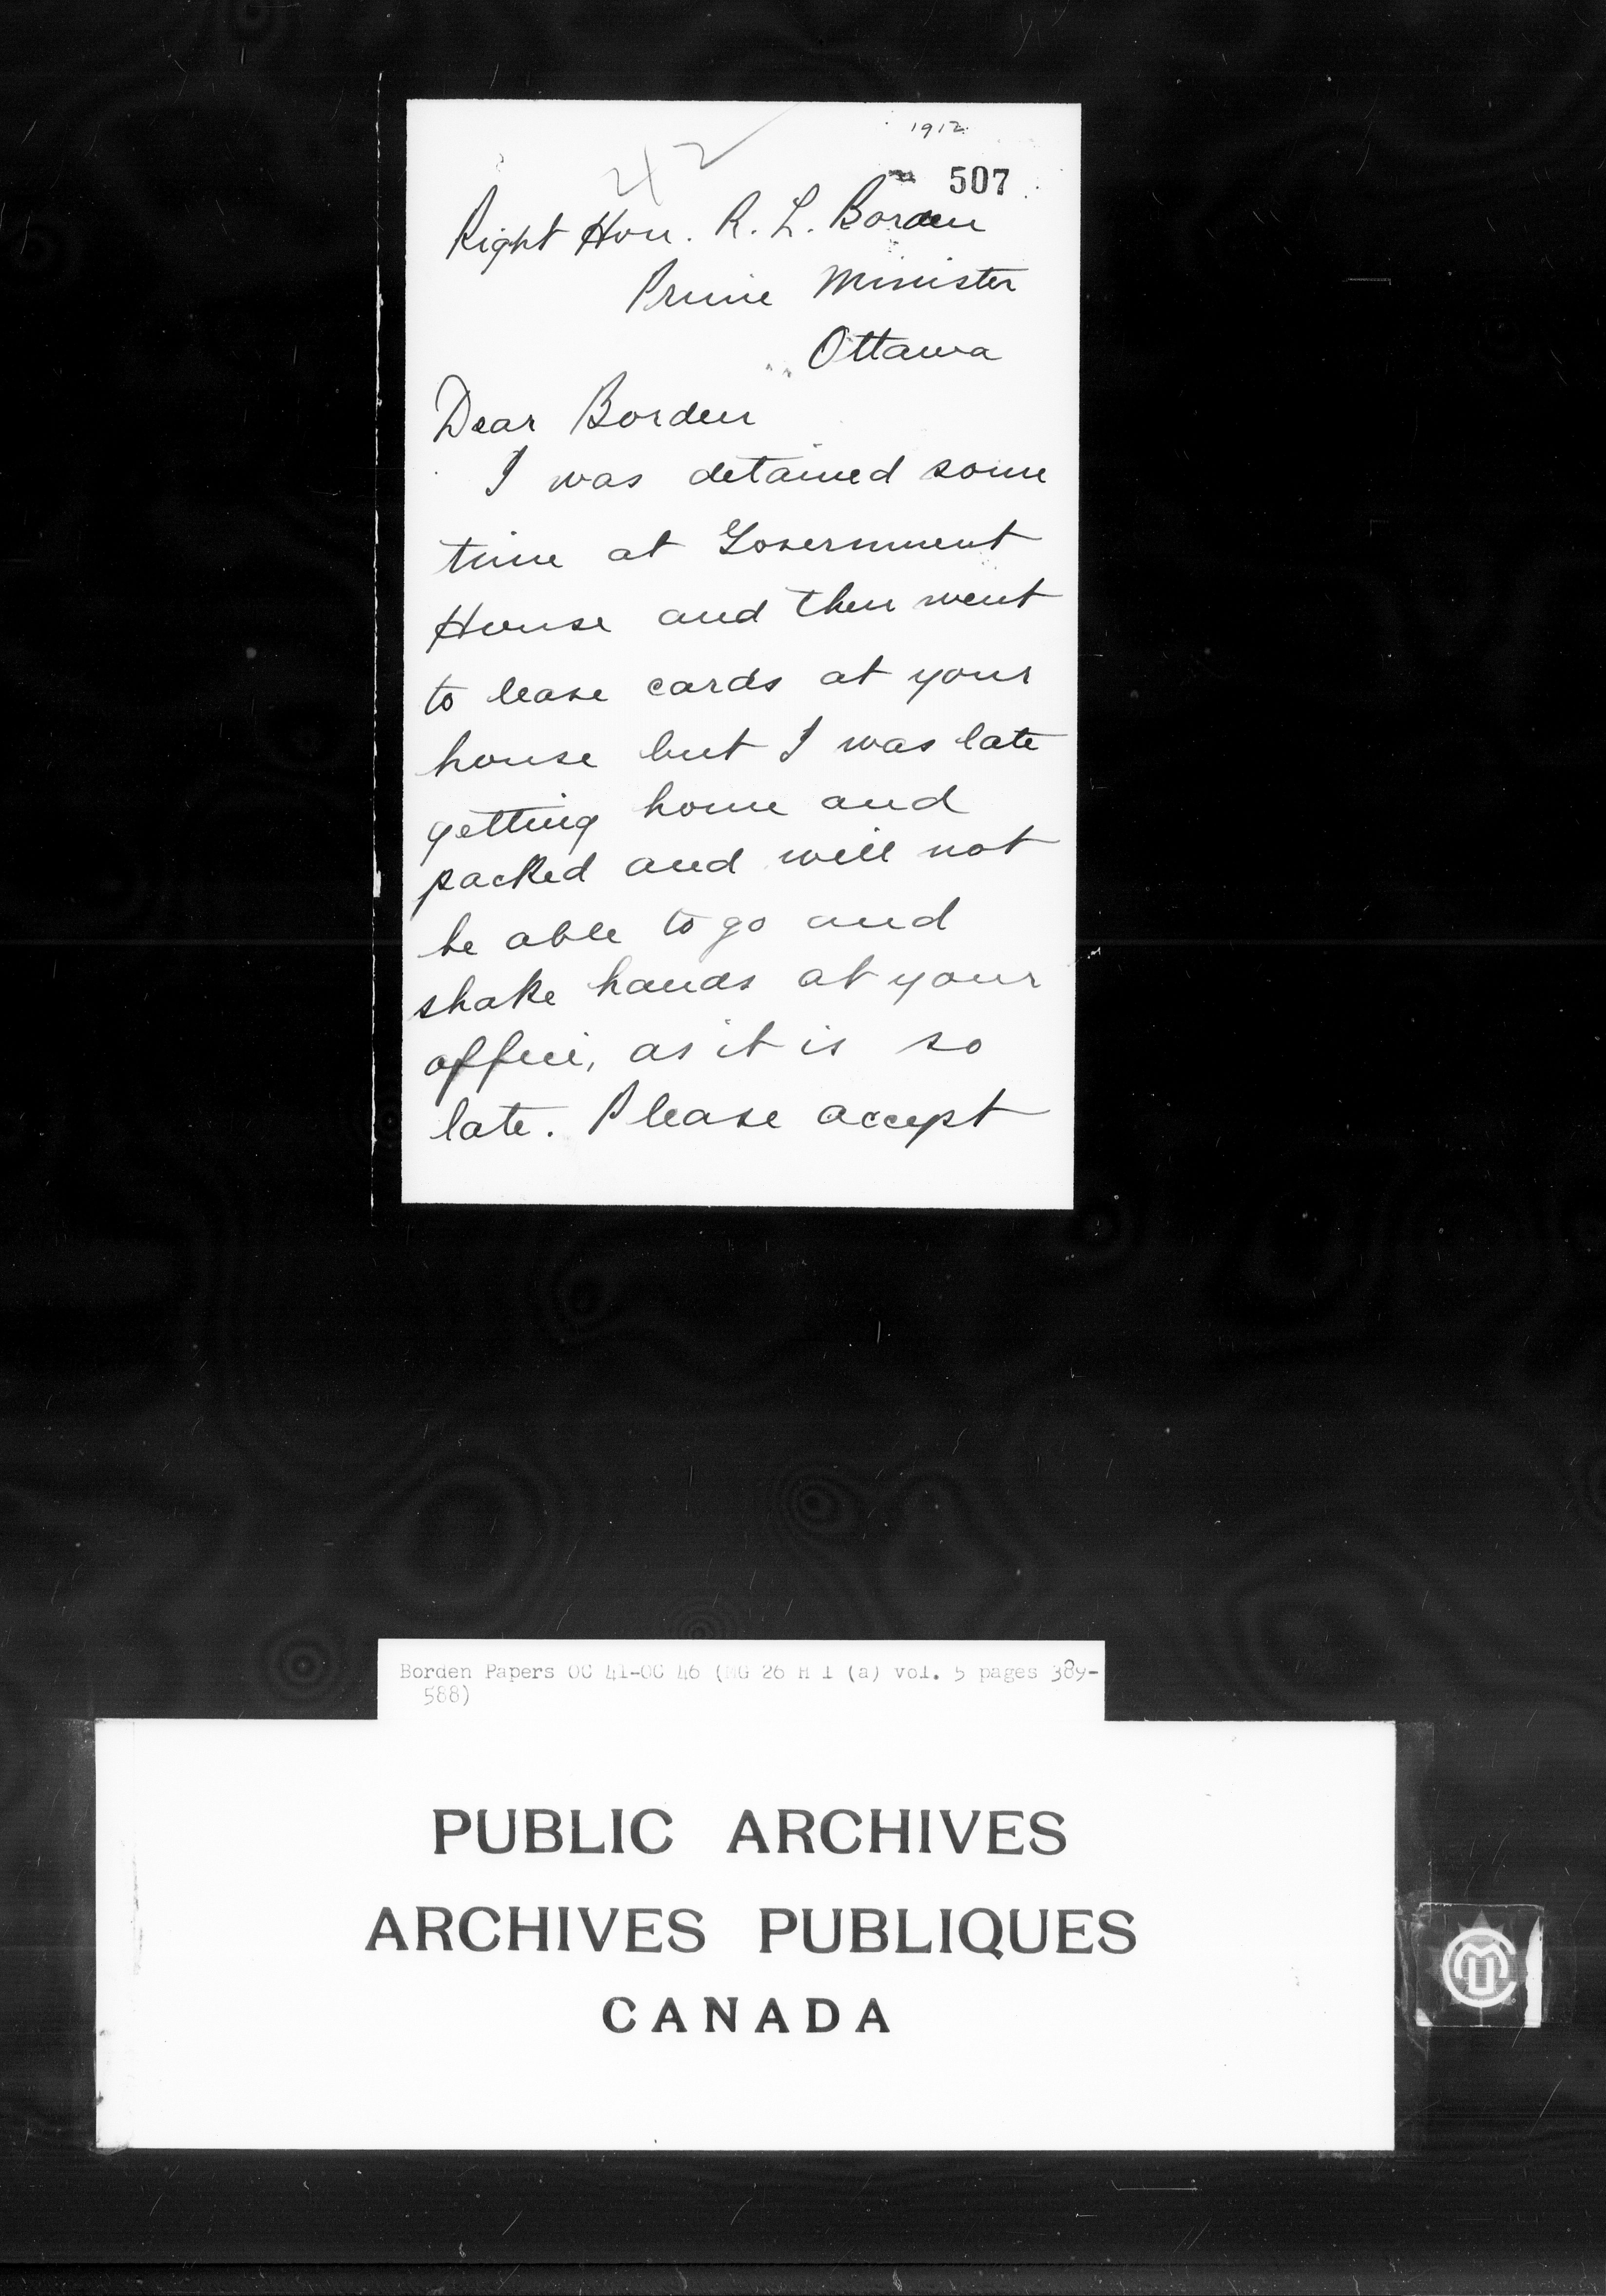 1912
42
507
Right Hon. R. L. Borden
Prime Minister
Ottawa
Dear Borden
I was detained some
time at Government
House and then went
to leave cards at your
house but I was late
getting home and
packed and will not
be able to go and
shake hands at your
office, as it is so
late. Please accept
Borden Papers OC 41-OC 46 (MG 26 H 1 (a) vol. 5 pages 389-
588)
PUBLIC ARCHIVES
ARCHIVES PUBLIQUES
CANADA